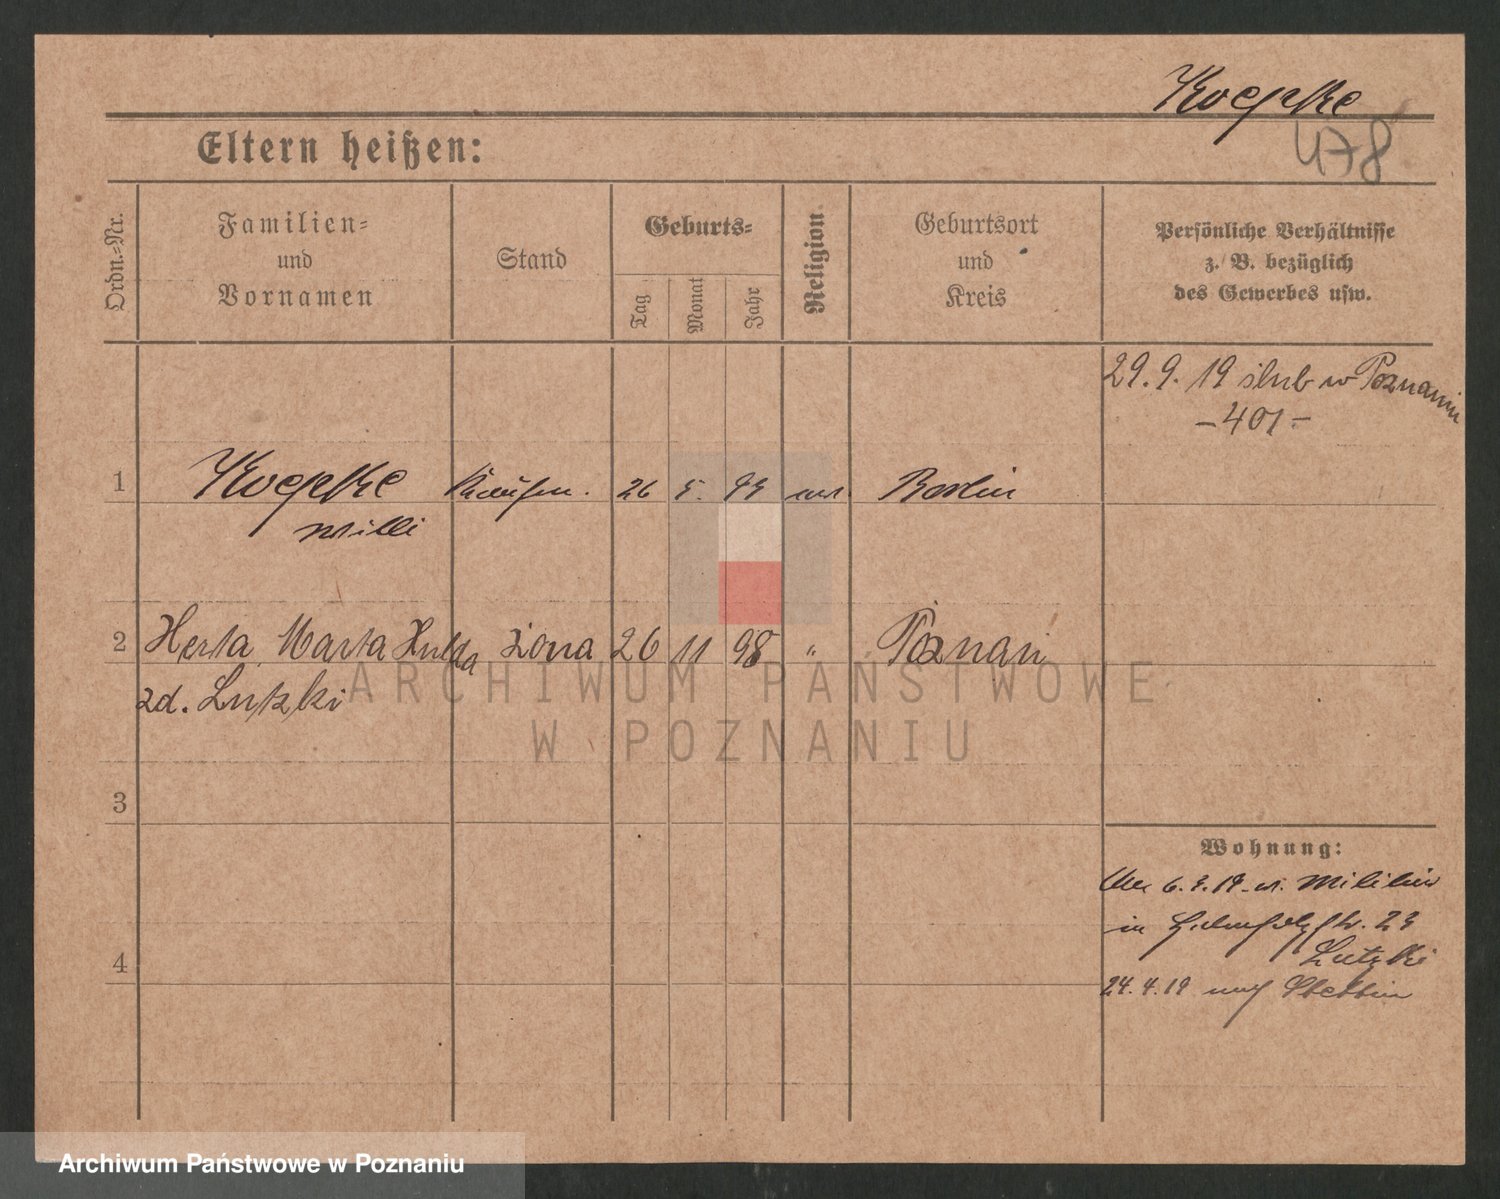 Koepke
478
Eltern heißen:
Ordn.-Nr.
Familien-
und
Vornamen
Stand
Geburts-
Tag
Monat
Jahr
Religion
Geburtsort
und
Kreis
Persönliche Verhältnisse
z. B. bezüglich
des Gewerbes usw.
29.9.19 ślub w Poznaniu
-401-
1 Koepke Kaufm. 26 5. Berlin
Willi
2 Herta Marta Hulda żona 26 11 98 " Poznań
zd. Lutzki
3
4
Wohnung:
6.3.19
in 23
Lutzki
24.4.19 nach Stettin
ARCHIWUM PAŃSTWOWE
W POZNANIU
Archiwum Państwowe w Poznaniu